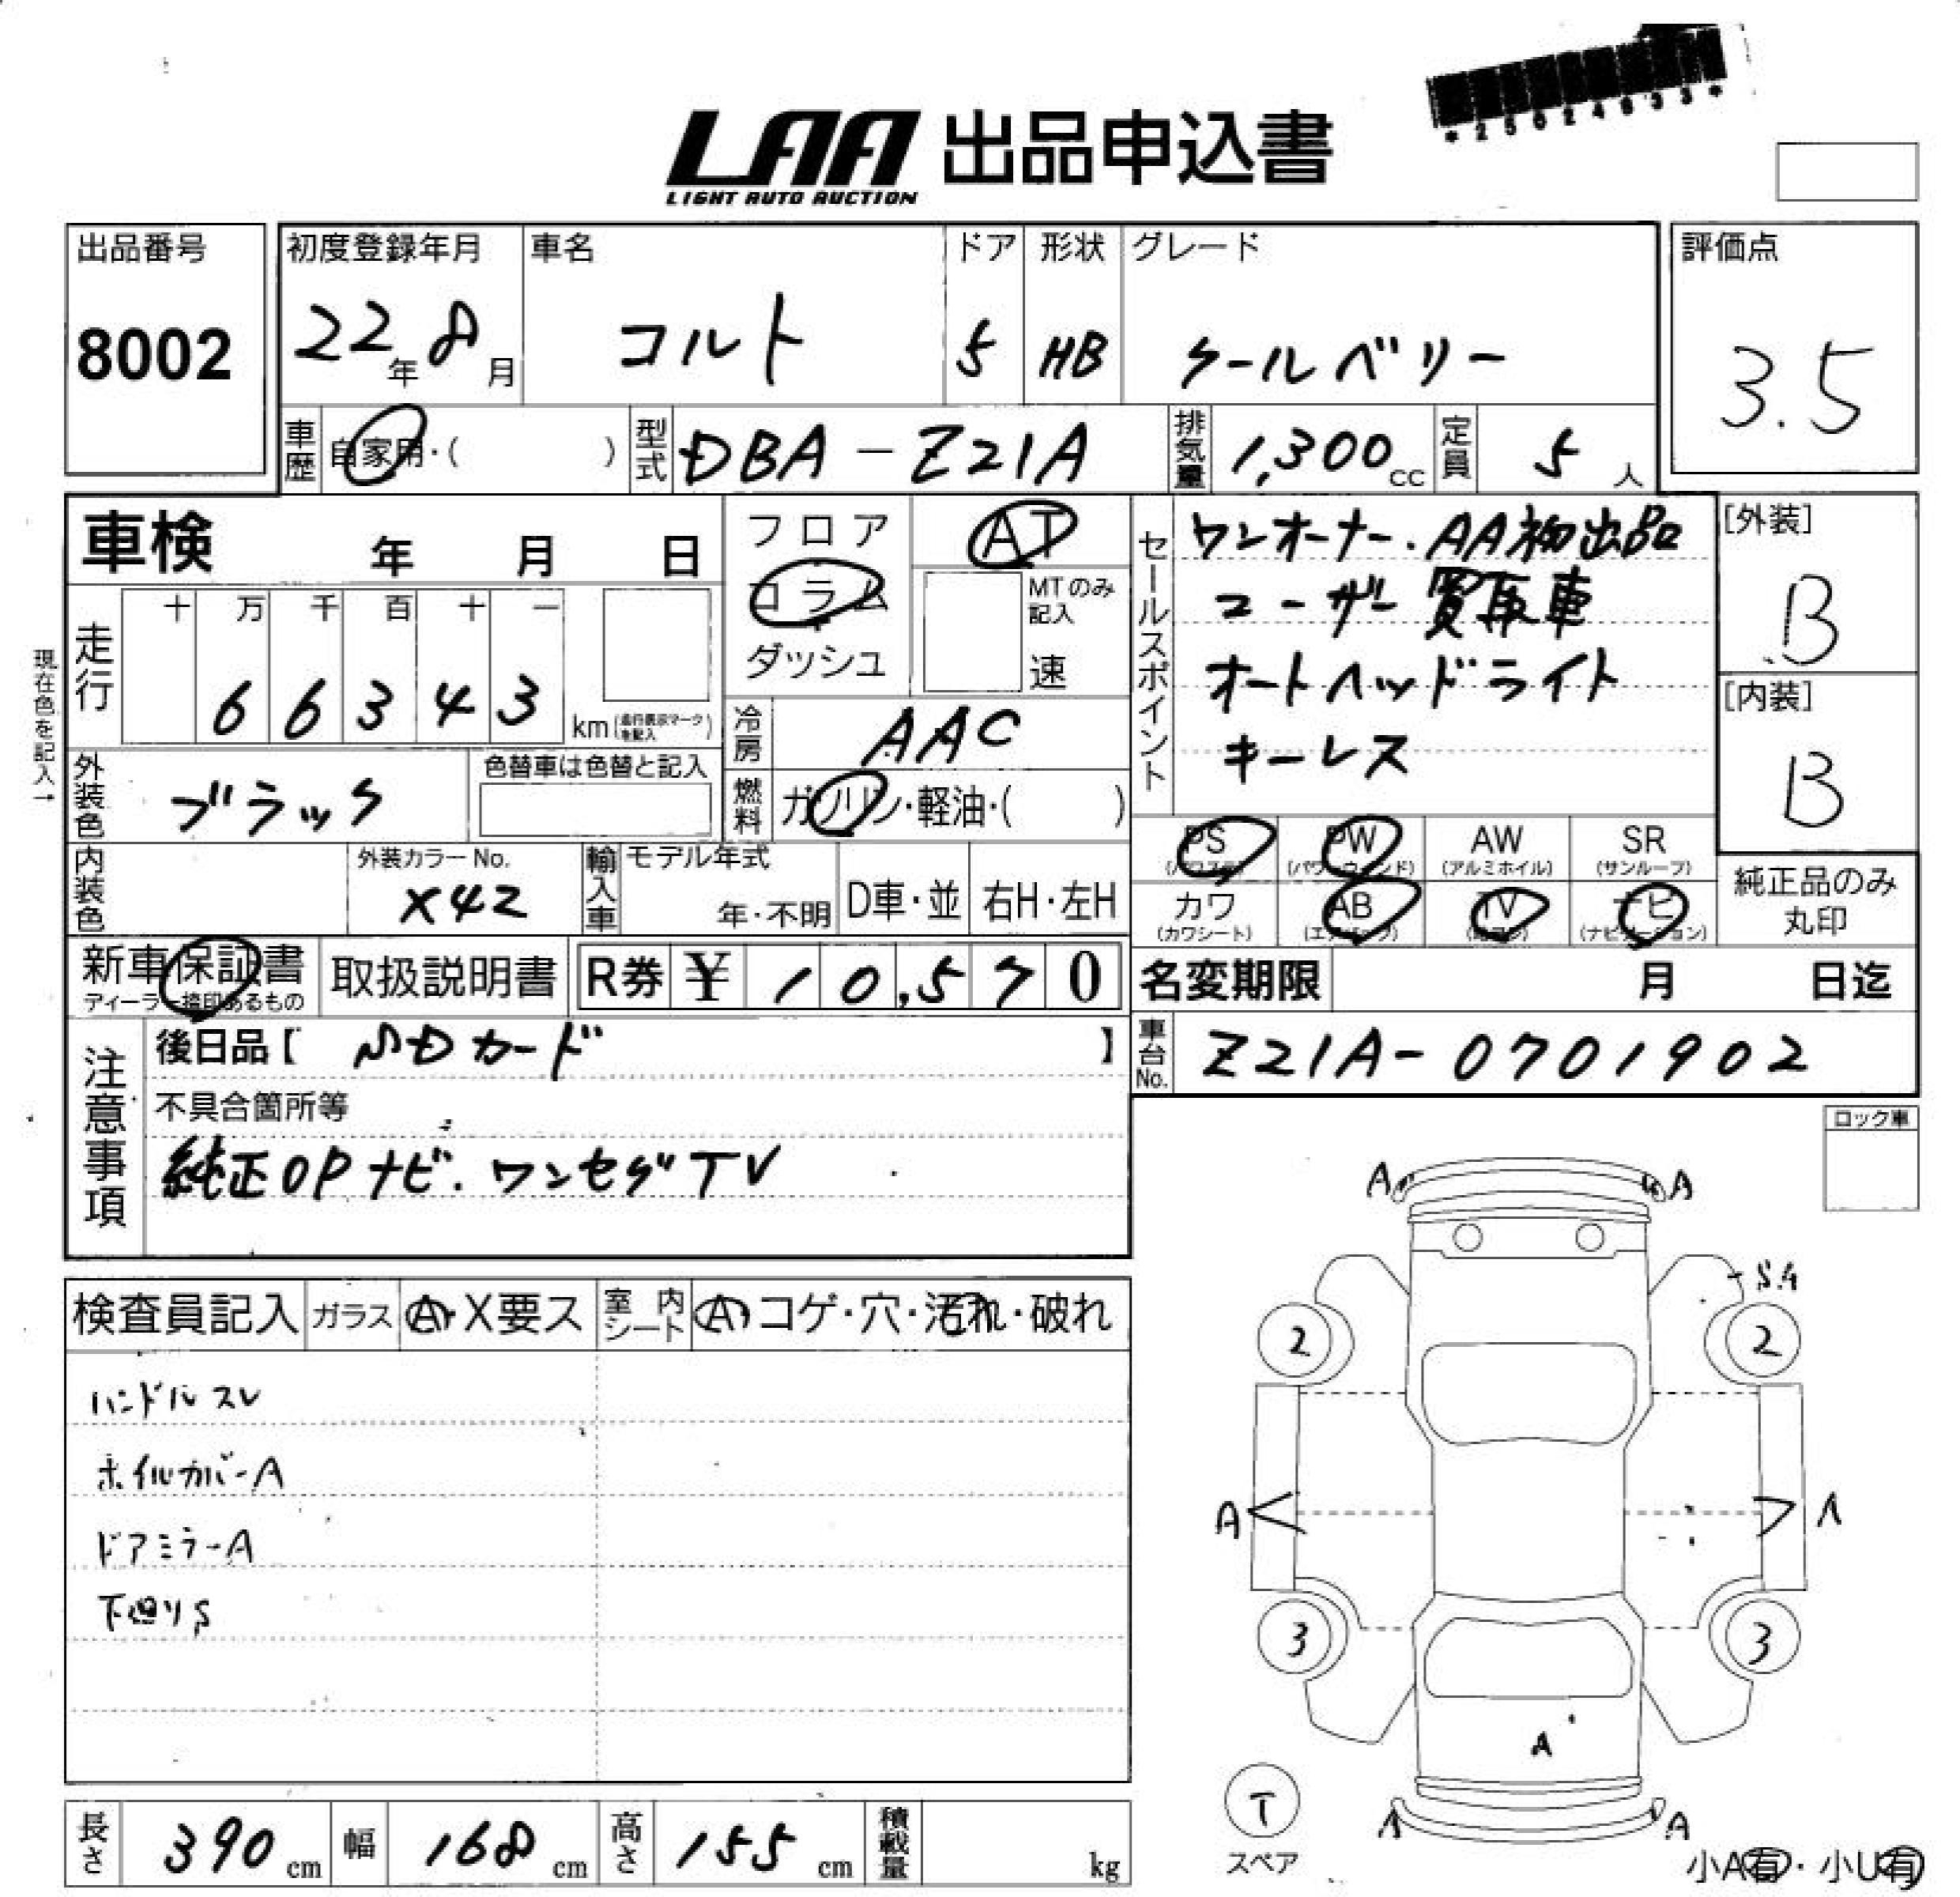 *25024633*
LAA 出品申込書
LIGHT AUTO AUCTION
出品番号
8002
初度登録年月
22年 8月
車名
コルト
ドア
5
形状
HB
グレード
クールベリー
評価点
3.5
車歴 自家用・( )
型式 DBA-Z21A
排気量 1,300cc
定員 5人
車検 年 月 日
フロア
コラム
ダッシュ
AT
MTのみ記入
速
セールスポイント
ワンオーナー.AA初出品
ユーザー買取車
オートヘッドライト
キーレス
[外装]
B
[内装]
B
現在色を記入→
走行
十 万 千 百 十 一
6 6 3 4 3 km(走行表示マークを記入)
冷房 AAC
燃料 ガソリン・軽油・( )
外装色 ブラック
色替車は色替と記入
内装色
外装カラーNo.
X42
輸入車 モデル年式
年・不明
D車・並
右H・左H
PS (パワステ)
PW (パワーウィンド)
AW (アルミホイル)
SR (サンルーフ)
カワ (カワシート)
AB (エアバッグ)
TV
ナビ (ナビゲーション)
純正品のみ
丸印
新車保証書
ディーラー捺印あるもの
取扱説明書
R券 ¥ 10,570
名変期限 月 日迄
車台No. Z21A-0701902
注意事項
後日品【 SDカード 】
不具合箇所等
純正OPナビ.ワンセグTV
ロック車
検査員記入 ガラス A・X要ス 室内シート A・コゲ・穴・汚れ・破れ
ハンドルスレ
ホイルカバーA
ドアミラーA
下廻りS
A A
SA
2 2
A A
3 3
A
A A
T
スペア
小A有・小U有
長さ 390cm
幅 168cm
高さ 155cm
積載量 kg